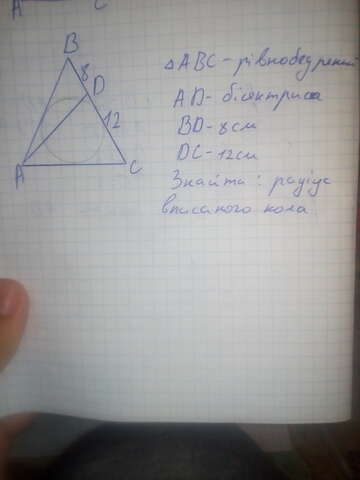 A C
B
8
D
12
A
C
△ABC - рівнобедрений
AD - бісектриса
BD - 8см
DC - 12см
Знайти: радіус
вписаного кола